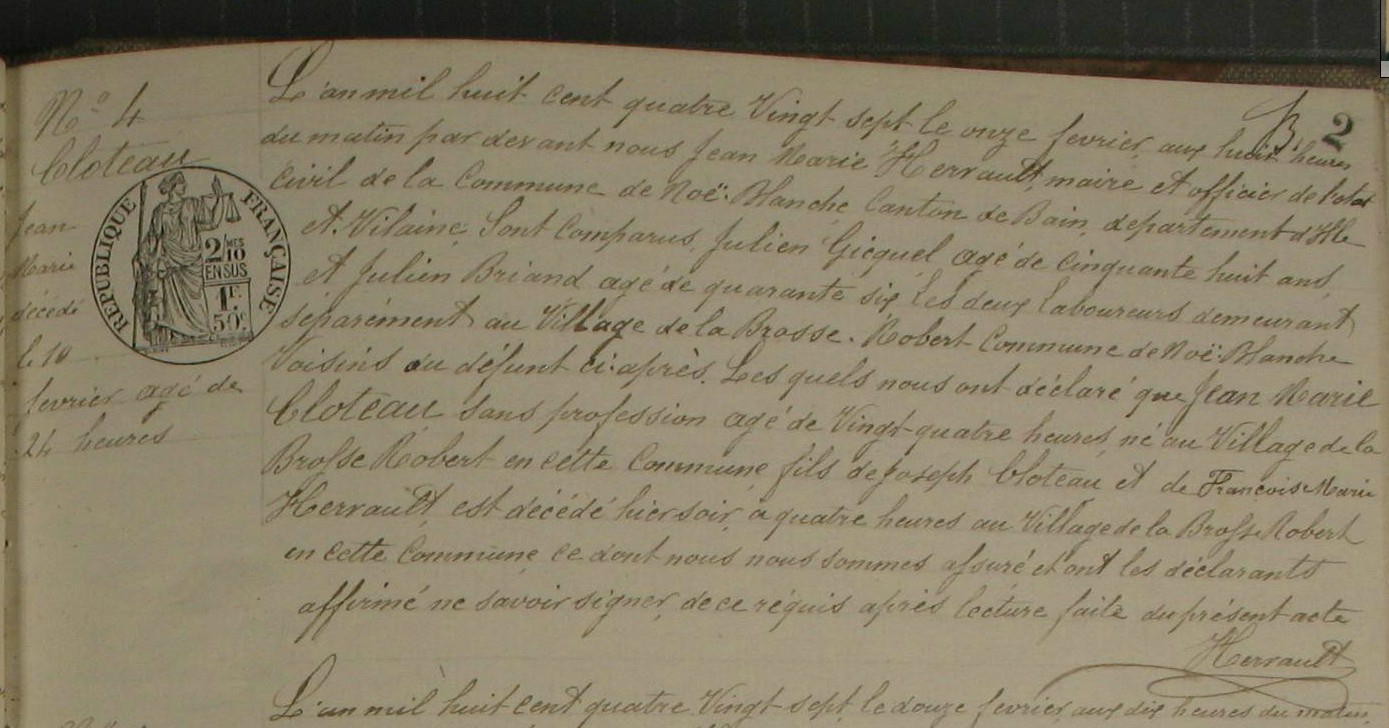 N.º 4
Cloteau
Jean
Marie
décédé
le 10
fevrier agé de
24 heures
REPUBLIQUE FRANÇAISE
2/MES 10
EN SUS
1F.
50c
B 2
L'an mil huit cent quatre Vingt sept le onze fevrier, aux huit heures
du matin par devant nous Jean Marie Herrault, maire et officier de l'etat
Civil de la Commune de Noë-Blanche Canton de Bain, departement d'Ille
et Vilaine, Sont Comparus, Julien Gicquel agé de cinquante huit ans,
et Julien Briand agé de quarante six les deux laboureurs demeurant
séparément au Village de la Brosse-Robert Commune de Noë-Blanche
Voisins du défunt ci-après. Les quels nous ont déclaré que Jean Marie
Cloteau sans profession agé de Vingt-quatre heures, né au Village de la
Brosse Robert en cette Commune fils de Joseph Cloteau et de Francoise Marie
Herrault, est décédé hier soir, a quatre heures au Village de la Brosse Robert
en cette Commune ce dont nous nous sommes assuré et ont les déclarants
affirmé ne savoir signer, de ce réquis après lecture faite du présent acte
Herrault
L'an mil huit cent quatre Vingt sept, le douze fevrier, aux dix heures du matin,